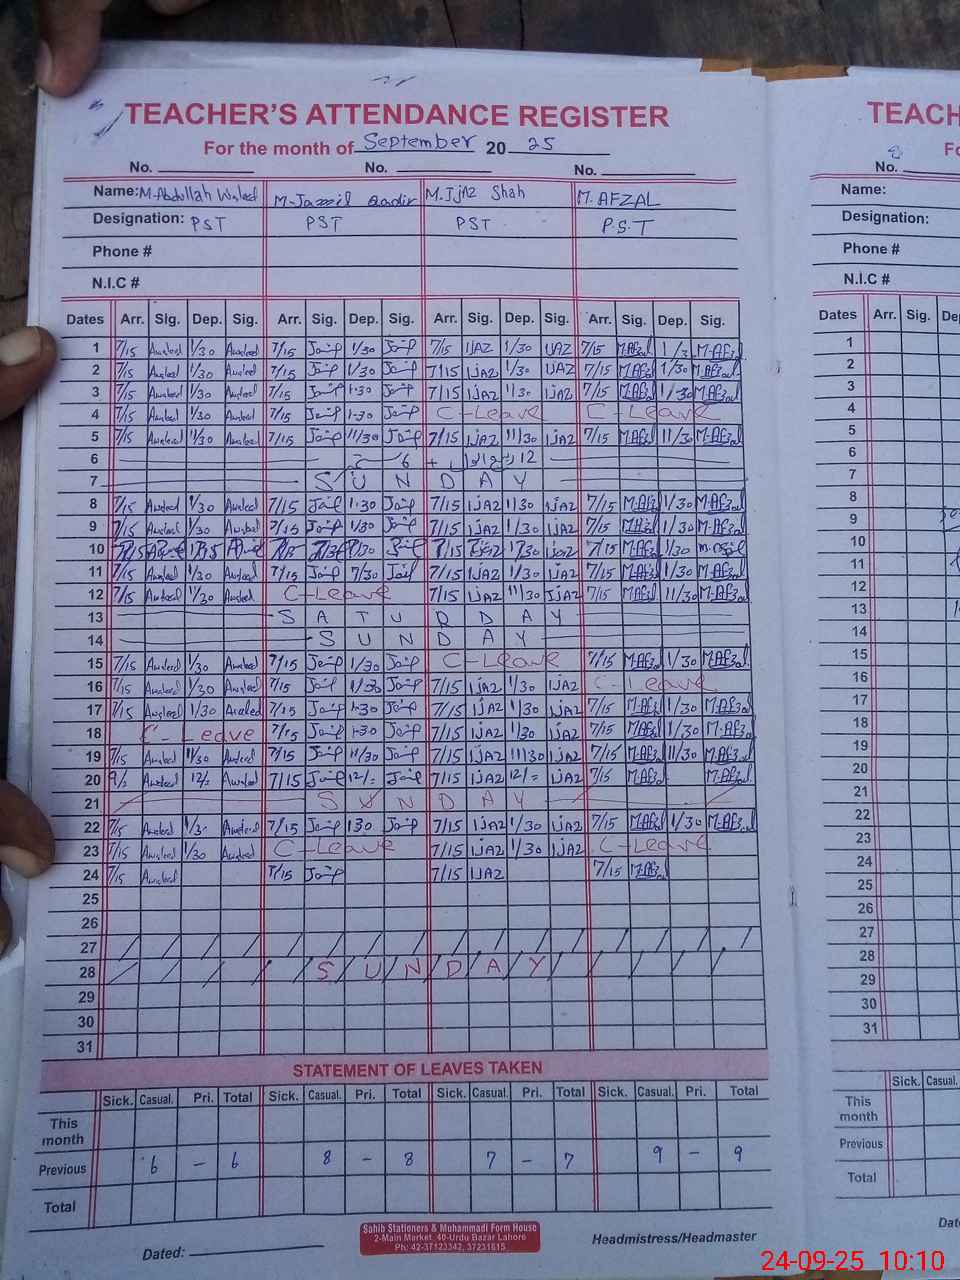 TEACHER'S ATTENDANCE REGISTER
For the month of September 20 25
No. No. No.
Name: M. Abdullah Waleed M. Jamil Qadir M. IjAZ Shah M. AFZAL
Designation: PST PST PST P.S.T
Phone #
N.I.C #
Dates Arr. Sig. Dep. Sig. Arr. Sig. Dep. Sig. Arr. Sig. Dep. Sig. Arr. Sig. Dep. Sig.
1 7/15 Awaleed 1/30 Awaleed 7/15 Jamil 1/30 Jamil 7/15 IJAZ 1/30 IJAZ 7/15 M.Afzal 1/3 M.Afzal
2 7/15 Awaleed 1/30 Awaleed 7/15 Jamil 1/30 Jamil 7/15 IJAZ 1/30 IJAZ 7/15 M.Afzal 1/30 M.Afzal
3 7/15 Awaleed 1/30 Awaleed 7/15 Jamil 1-30 Jamil 7/15 IJAZ 1/30 IJAZ 7/15 M.Afzal 1/30 M.Afzal
4 7/15 Awaleed 1/30 Awaleed 7/15 Jamil 1-30 Jamil C-Leave C-Leave
5 7/15 Awaleed 11/30 Awaleed 7/15 Jamil 11/30 Jamil 7/15 IJAZ 11/30 IJAZ 7/15 M.Afzal 11/30 M.Afzal
6 12
7 SUNDAY
8 7/15 Awaleed 1/30 Awaleed 7/15 Jamil 1-30 Jamil 7/15 IJAZ 1/30 IJAZ 7/15 M.Afzal 1/30 M.Afzal
9 7/15 Awaleed 1/30 Awaleed 7/15 Jamil 1/30 Jamil 7/15 IJAZ 1/30 IJAZ 7/15 M.Afzal 1/30 M.Afzal
10 7/15 7/15 IJAZ 1/30 IJAZ 7/15 M.Afzal 1/30
11 7/15 Awaleed 1/30 Awaleed 7/15 Jamil 7/30 Jamil 7/15 IJAZ 1/30 IJAZ 7/15 M.Afzal 1/30 M.Afzal
12 7/15 Awaleed 11/30 Awaleed C-Leave 7/15 IJAZ 11/30 IJAZ 7/15 M.Afzal 11/30 M.Afzal
13 SATUDDAY
14 SUNDAY
15 7/15 Awaleed 1/30 Awaleed 7/15 Jamil 1/30 Jamil C-Leave 7/15 M.Afzal 1/30 M.Afzal
16 7/15 Awaleed 1/30 Awaleed 7/15 Jamil 1/30 Jamil 7/15 IJAZ 1/30 IJAZ C-Leave
17 7/15 Awaleed 1/30 Awaleed 7/15 Jamil 1-30 Jamil 7/15 IJAZ 1/30 IJAZ 7/15 M.Afzal 1/30 M.Afzal
18 C-Leave 7/15 Jamil 1-30 Jamil 7/15 IJAZ 1/30 IJAZ 7/15 M.Afzal 1/30 M.Afzal
19 7/15 Awaleed 11/30 Awaleed 7/15 Jamil 11/30 Jamil 7/15 IJAZ 11/30 IJAZ 7/15 M.Afzal 11/30 M.Afzal
20 Awaleed 12/= Awaleed 7/15 Jamil 12/= Jamil 7/15 IJAZ 12/= IJAZ 7/15 M.Afzal M.Afzal
21 SUNDAY
22 7/15 Awaleed 1/3- Awaleed 7/15 Jamil 130 Jamil 7/15 IJAZ 1/30 IJAZ 7/15 M.Afzal 1/30 M.Afzal
23 7/15 Awaleed 1/30 Awaleed C-Leave 7/15 IJAZ 1/30 IJAZ C-Leave
24 7/15 Awaleed 7/15 Jamil 7/15 IJAZ 7/15 M.Afzal
25
26
27
28 SUNDAY
29
30
31
STATEMENT OF LEAVES TAKEN
Sick. Casual. Pri. Total Sick. Casual. Pri. Total Sick. Casual. Pri. Total Sick. Casual. Pri. Total
This month
Previous 6 - 6 8 - 8 7 - 7 9 - 9
Total
Dated:
Sahib Stationers & Muhammadi Form House
2-Main Market, 40-Urdu Bazar Lahore
Ph: 42-37123342, 37231615
Headmistress/Headmaster
TEACH
Fo
No. 8
Name:
Designation:
Phone #
N.I.C #
Dates Arr. Sig. De
1
2
3
4
5
6
7
8
9
10
11
12
13
14
15
16
17
18
19
20
21
22
23
24
25
26
27
28
29
30
31
Sick. Casual.
This month
Previous
Total
Dat
24-09-25 10:10